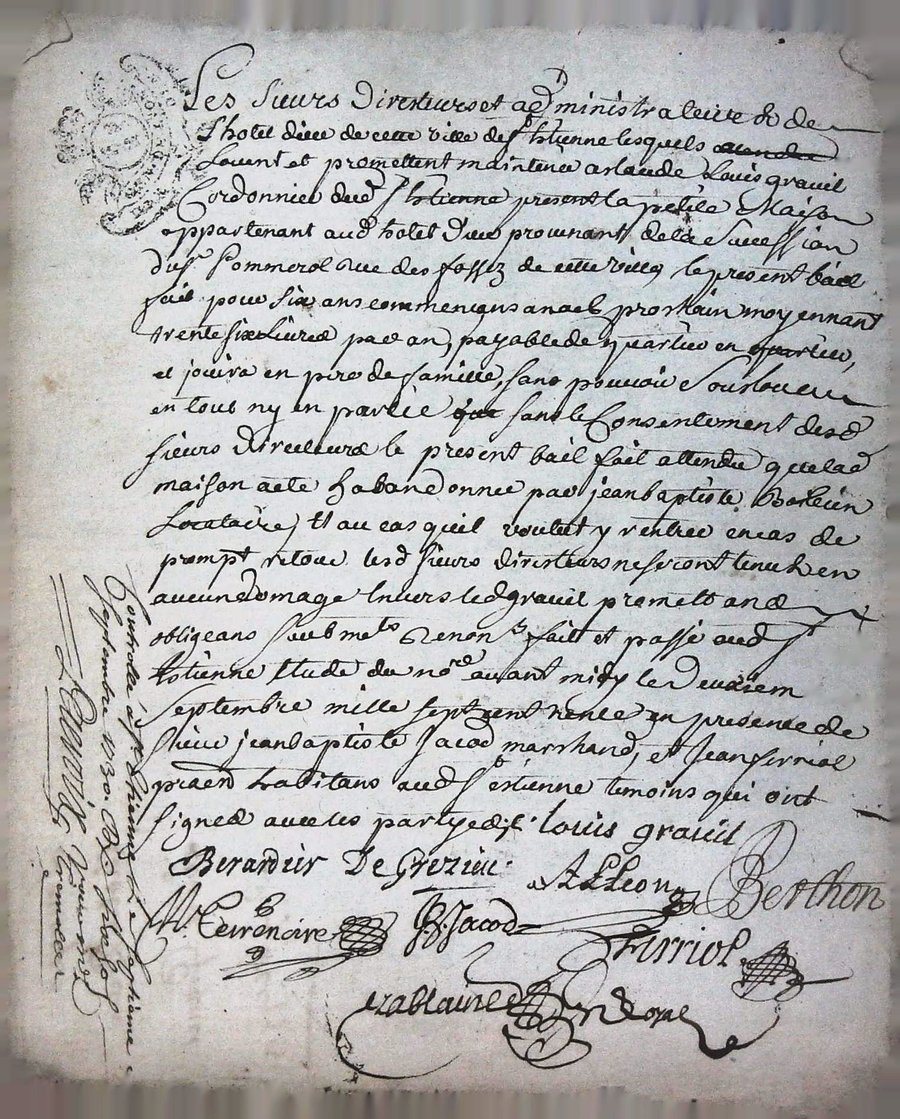 Les sieurs directeurs et administrateurs de
l'hotel dieu de cette ville de St Etienne lesquels
Louent et promettent maintenir a Louis grauil
Cordonnier dud St Etienne present la petite Maison
appartenant aud hotel Dieu provenant de la Succession
du Sr Pommerol rue des fossez de cette ville, le present bail
fait pour six ans commençans a prochain moyennant
trente six Livres par an, payable de quartier en quartier,
et jouira en pere de famille, sans pouvoir Souslouer
en tout ny en partie sans le Consentement desd
sieurs directeurs le present bail fait attendu que lad
maison a ete habandonnée par jean baptiste
Locataire, Et au cas qu'il voulut y rentrer en cas de
prompt retour lesd sieurs directeurs ne seront tenus en
aucun domage Envers led grauil promettans
obligeans soubmets Renons fait et passé aud St
Etienne Etude du nore avant midy le deuxiem
Septembre mille sept cent trente en presence de
Sieur jean baptiste Jacod marchand, et Jean ferriol
praed habitans aud St etienne temoins qui ont
signé avec les partyes louis grauil
Berardier De Grezieu
ALeon Berthon
M. Terrenoire JB. Jacod
Ferriol
Controllé a St Etienne le septieme
Septembre 1730. R